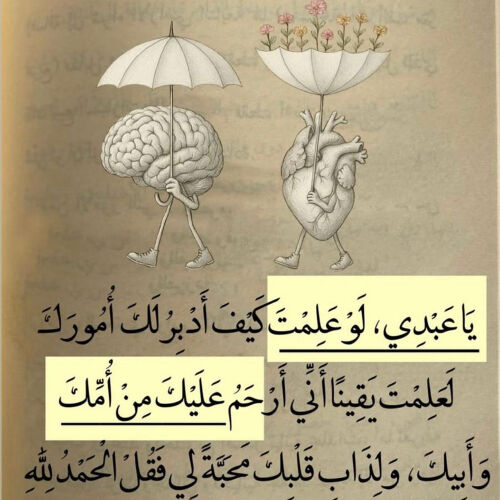 يَا عَبْدِي، لَوْ عَلِمْتَ كَيْفَ أَدْبِرُ لَكَ أُمُورَكَ
لَعَلِمْتَ يَقِينًا أَنِّي أَرْحَمُ عَلَيْكَ مِنْ أُمِّكَ
وَأَبِيكَ، وَلَذَابَ قَلْبُكَ مَحَبَّةً لِي فَقُلْ الْحَمْدُ لِلَّهِ